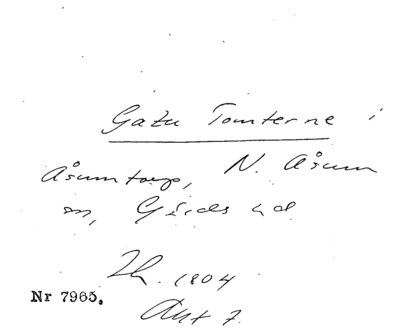 Gatu Tomterne i
Åsumtorp, N. Åsum
sn, Gärds hd
1804
Nr 7965.
Akt 7.